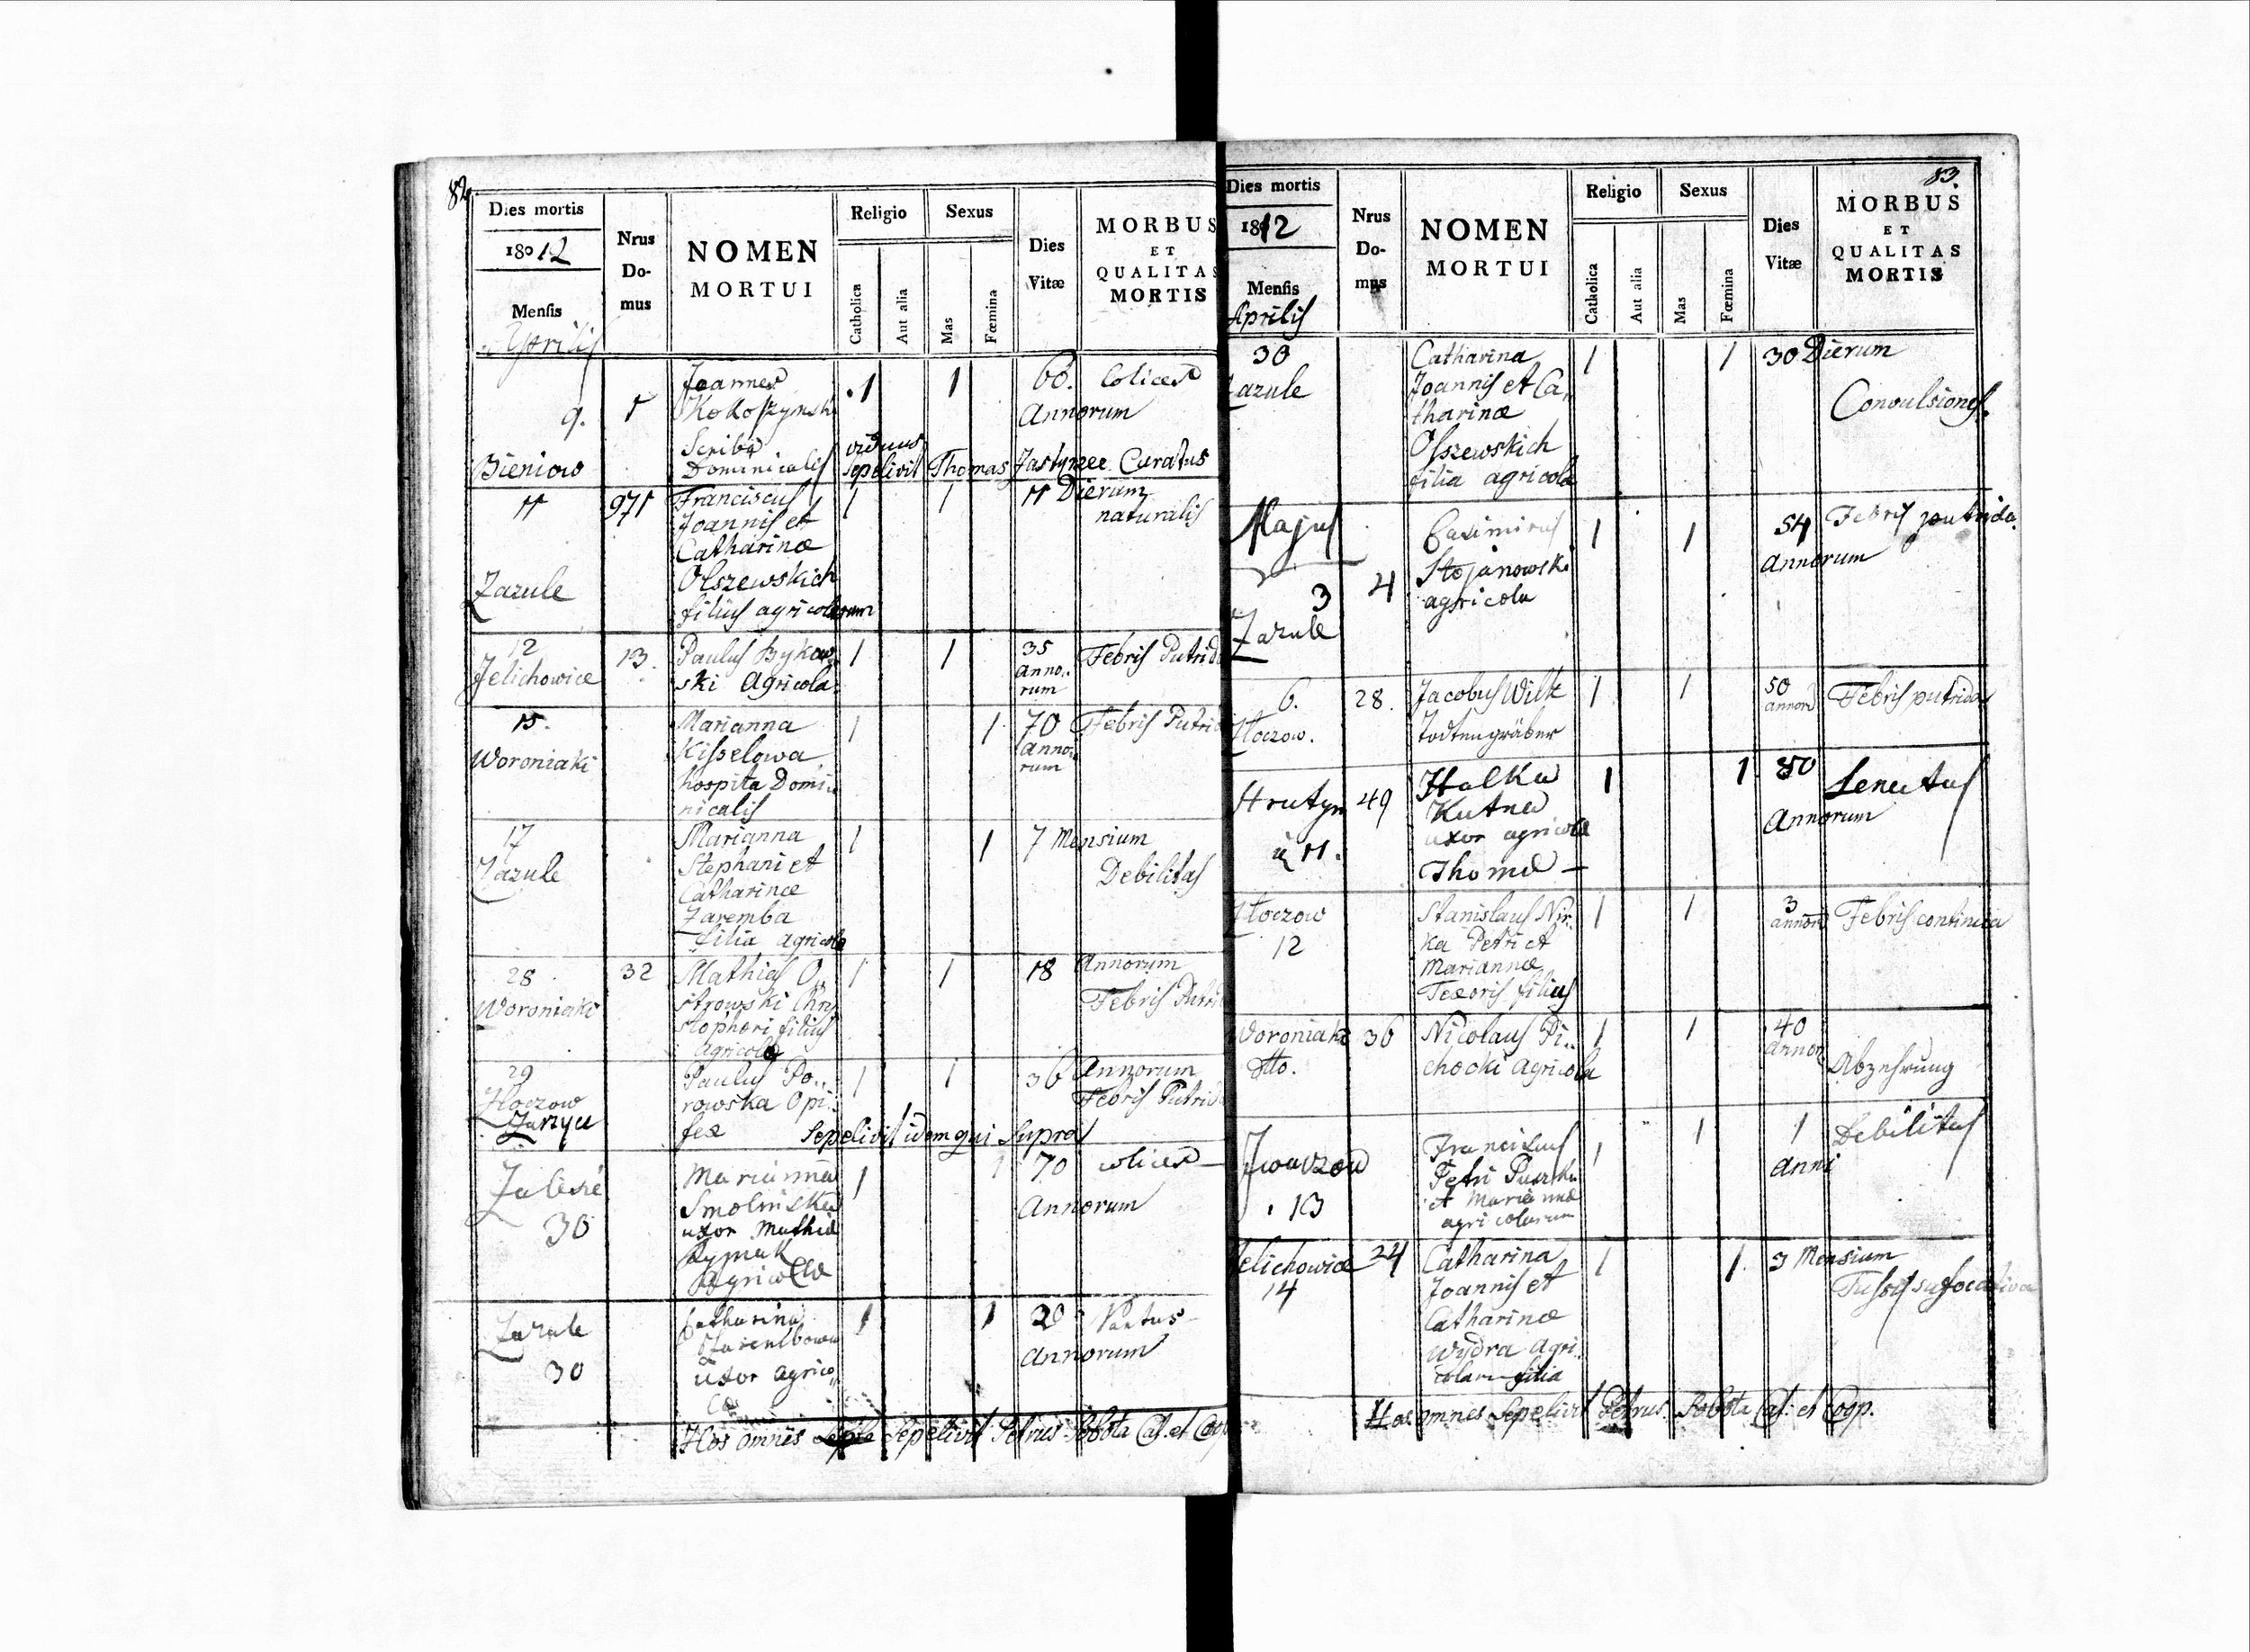 82.
Dies mortis
18012
Mensis
Aprilis
Nrus
Do-
mus
NOMEN
MORTUI
Religio
Catholica
Aut alia
Sexus
Mas
Fœmina
Dies
Vitæ
MORBUS
ET
QUALITAS
MORTIS
9.
Bieniow
Joannes
Scriba
Dominicalis
viduus
1 1
60. Colica
Annorum
Sepelivit Thomas Curatus
11
Zazule
971
Franciscus
Joannis et
Catharinæ
Olszewskich
filius agricolarum
1 1
11 Dierum
naturalis
12
Jelichowice
13.
Paulus Bykow
ski Agricola
1 1
35
Anno..
rum
Febris Putrida
15.
Woroniaki
Marianna
Kisselowa
hospita Domi
nicalis
1 1
70
Anno.
rum
Febris Putrid
17
Zazule
Marianna
Stephani et
Catharinæ
Zaremba
filia agricola
1 1
7 Mensium
Debilitas
28
Woroniaki
32
Mathias O
strowski Chri
stophori filius
agricola
1 1
18 Annorum
Febris Putri
29
Zloczow
Paulus Po..
rowska Opi..
fex
1 1
36 Annorum
Febris Putrid
Sepelivit idem qui supra
Zalesie
30
Marianna
Smolinska
uxor Mathiæ
Agricolæ
1 1
70 colica
Annorum
Zazule
30
Catharina
uxor agrico
læ
1 1
20 Partus
Annorum
Hos omnes Sepelivit Petrus Sobota Cat. et Coop
83.
Dies mortis
1812
Mensis
Aprilis
Nrus
Do-
mus
NOMEN
MORTUI
Religio
Catholica
Aut alia
Sexus
Mas
Fœmina
Dies
Vitæ
MORBUS
ET
QUALITAS
MORTIS
30
Zazule
Catharina
Joannis et Ca
tharinæ
Olszewskich
filia agricola
1 1
30 Dierum
Convulsiones.
Majus
3
Zazule
4
Casimirus
Stojanowski
agricola
1 1
54
Annorum
Febris putrida.
6.
Zloczow.
28.
Jacobus Wilk
Todtengräber
1 1
50
annor
Febris putrida
Hrutyn
49
Halka
Kutna
uxor agricolæ
Thomæ —
1 1
80
Annorum
Senectus
Zloczow
12
Stanislaus Nir..
ka Petri et
Mariannæ
Texoris filius
1 1
3
annor
Febris continua
Woroniaki
dtto.
36
Nicolaus Pi..
chocki Agricola
1 1
40
Annor
Abzehrung
13
Franciscus
Petri
et Mariannæ
agricolarum
1 1
1
Anni
Debilitas
Jelichowice
14
24
Catharina
Joannis et
Catharinæ
Wydra Agri..
colarum filia
1 1.
3 Mensium
Tussis suffocativa
Hos omnes Sepelivit Petrus Sobota Cat: et Coop.